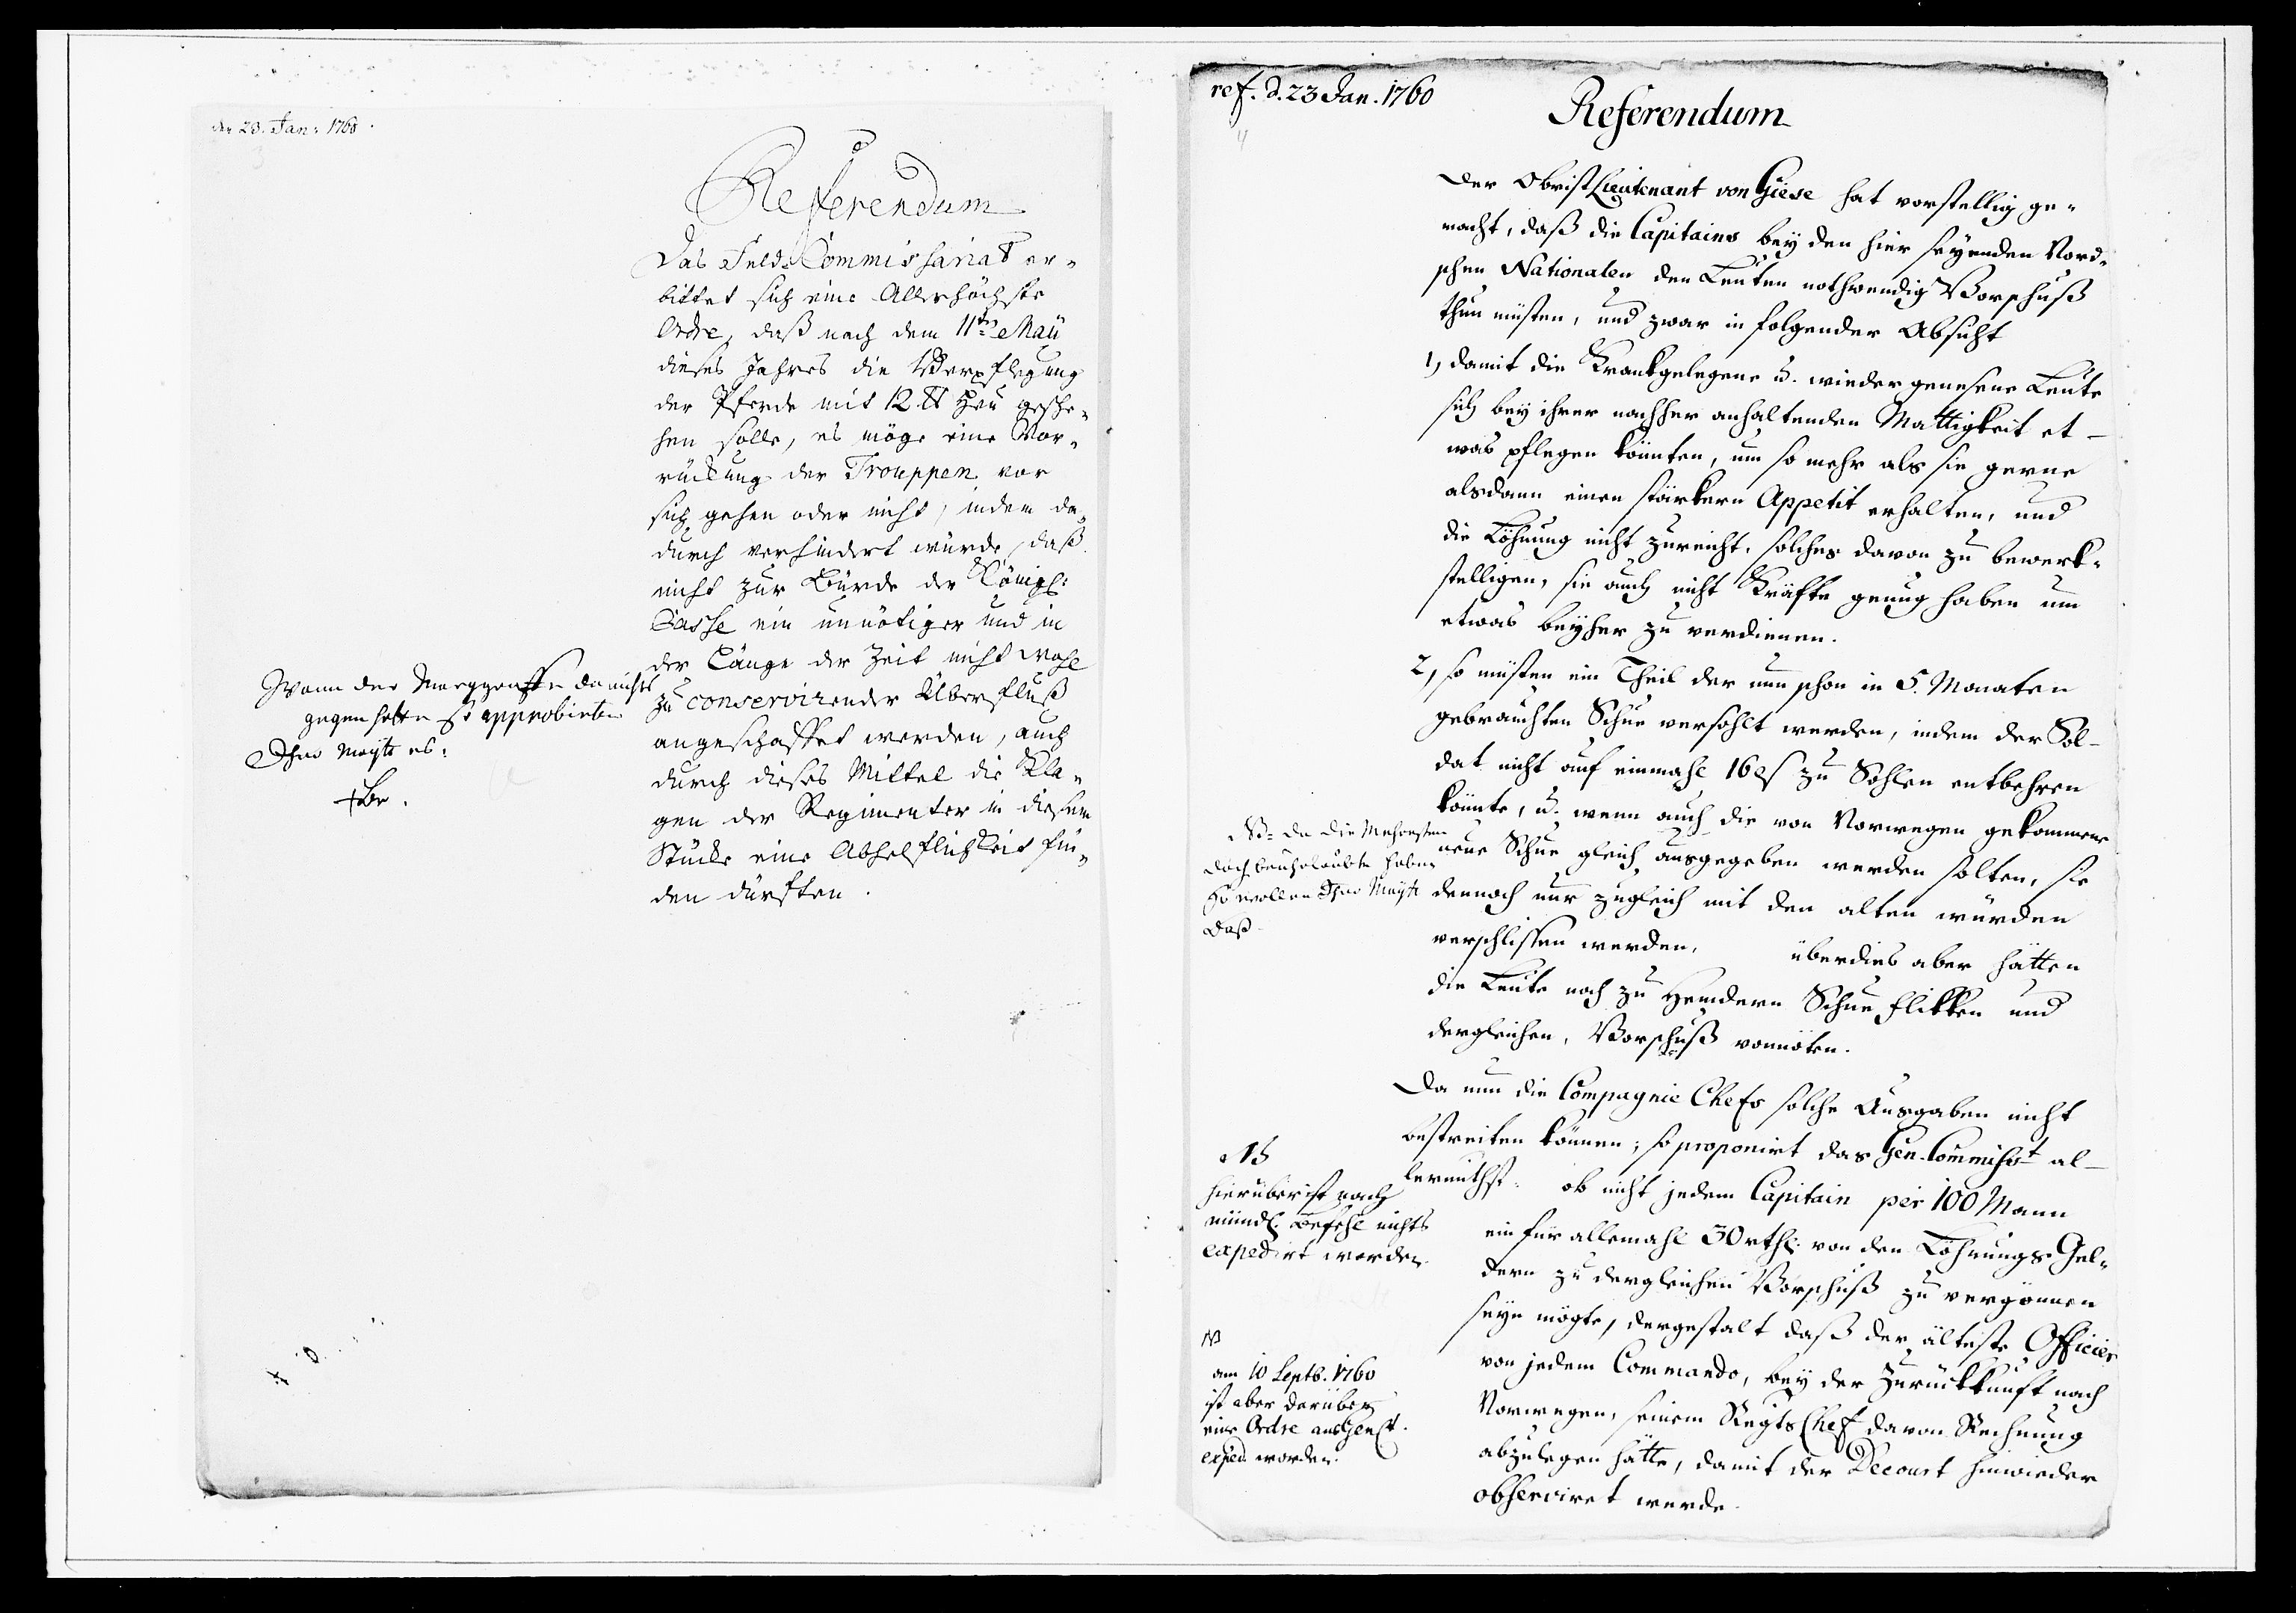 den 23. Jan: 1760.
3
Referendum
Das Feld-Commissariat er-
bittet sich eine Allerhöchste
Ordre, daß nach dem 11ten Maii
dieses Jahres die Verpflegung
der Pferde mit 12 ℔ Heu gesche-
hen solle, es möge eine Vor-
rückung der Trouppen vor
sich gehen oder nicht, indem da-
durch verhindert würde, daß
nicht zur Bürde der Königl:
Casse ein unnötiger und in
der Länge der Zeit nicht wohl
zu conservirender Überfluß
angeschaffet werden, auch
durch dieses Mittel die Kla-
gen der Regimenter in diesem
Stücke eine Abhelflichkeit fin-
den dürften.
Wann der Marggraff da nichts
gegen hette so approbirten
Ihro Maytt es:
ref. d. 23 Jan. 1760
4
Referendum
Der ObristLieutenant von Giese hat vorstellig ge-
macht, daß die Capitains bey den hier seyenden Nord-
schen Nationalen den Leuten nothwendig Vorschuß
thun müsten, und zwar in folgender Absicht
1, damit die Krankgelegene u. wieder genesene Leute
sich bey ihrer nachher anhaltenden Mattigkeit et-
was pflegen könnten, um so mehr als sie gerne
alsdann einen stärkern Appetit erhalten, und
die Löhnung nicht zureicht, solches davon zu bewerk-
stelligen, sie auch nicht Kräfte genug haben um
etwas beyher zu verdienen.
2, so müsten ein Theil der nun schon in 5. Monaten
gebrauchten Schue versohlt werden, indem der Sol-
dat nicht auf einmahl 16 ß zu Sohlen entbehren
könnte, u. wenn auch die von Norwegen gekommene
neue Schue gleich ausgegeben werden solten, sie
dennoch nur zugleich mit den alten würden
verschlissen werden, überdies aber hätten
die Leute noch zu Hemdern Schue flikken und
dergleichen, Vorschuß vonnöten.
NB: da die Mehresten
doch beuhrlaubte haben
so wollen Ihro Maytt
daß
Da nun die Compagnie Chefs solche Ausgaben nicht
bestreiten können; so proponirt das Gen. Commisst al-
lerunthst: ob nicht jedem Capitain per 100 Mann
ein für allemahl 50 rthl. von den Löhnungs-Gel-
dern zu dergleichen Vorschuß zu vergönnen
seyn mögte, dergestalt daß der älteste Officier
von jedem Commando, bey der Zurückkunft nach
Norwegen, seinem Regts Chef davon Rechnung
abzulegen hätte, damit der Decourt hinwieder
observiret werde.
NB
hierüber ist nach
mündl. Befehl nichts
expedirt worden
NB
am 10 Septb. 1760
ist aber darüber
eine Ordre ans
exped. worden.